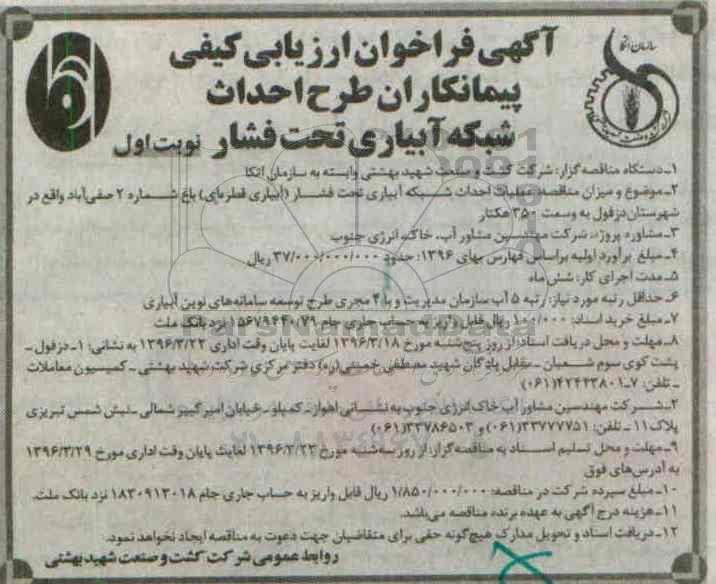 سازمان اتکا
آگهی فراخوان ارزیابی کیفی
پیمانکاران طرح احداث
شبکه آبیاری تحت فشار نوبت اول
۱ـ دستگاه مناقصه گزار: شرکت کشت و صنعت شهید بهشتی وابسته به سازمان اتکا
۲ـ موضوع و میزان مناقصه: عملیات احداث شبکه آبیاری تحت فشار (آبیاری قطره‌ای) باغ شماره ۲ صفی‌آباد واقع در
شهرستان دزفول به وسعت ۳۵۰ هکتار
۳ـ مشاوره پروژه: شرکت مهندسین مشاور آب، خاک، انرژی جنوب
۴ـ مبلغ برآورد اولیه براساس فهارس بهای ۱۳۹۶: حدود ۳۷/۰۰۰/۰۰۰/۰۰۰ ریال
۵ـ مدت اجرای کار: شش ماه
۶ـ حداقل رتبه مورد نیاز: رتبه ۵ آب سازمان مدیریت و یا ۴ مجری طرح توسعه سامانه‌های نوین آبیاری
۷ـ مبلغ خرید اسناد: ۱۰۰/۰۰۰ ریال قابل واریز به حساب جاری جام ۱۵۶۷۹۴۴۰/۷۹ نزد بانک ملت
۸ـ مهلت و محل دریافت اسناد: از روز پنج‌شنبه مورخ ۱۳۹۶/۳/۱۸ لغایت پایان وقت اداری ۱۳۹۶/۳/۲۲ به نشانی: ۱ـ دزفول ـ
پشت کوی سوم شعبان ـ مقابل پادگان شهید مصطفی خمینی (ره) دفتر مرکزی شرکت شهید بهشتی ـ کمیسیون معاملات
ـ تلفن: ۷ـ۴۲۴۲۳۸۰۱(۰۶۱)
۲ـ شرکت مهندسین مشاور آب خاک انرژی جنوب به نشانی اهواز ـ کمپلو ـ خیابان امیر کبیر شمالی ـ نبش شمس تبریزی
پلاک ۱۱ ـ تلفن: ۳۳۷۷۷۷۵۱(۰۶۱) و ۳۳۷۸۶۵۰۳(۰۶۱)
۹ـ مهلت و محل تسلیم اسناد به مناقصه گزار: از روز سه‌شنبه مورخ ۱۳۹۶/۳/۲۳ لغایت پایان وقت اداری مورخ ۱۳۹۶/۳/۲۹
به آدرس‌های فوق
۱۰ـ مبلغ سپرده شرکت در مناقصه: ۱/۸۵۰/۰۰۰/۰۰۰ ریال قابل واریز به حساب جاری جام ۱۸۳۰۹۱۳۰۱۸ نزد بانک ملت.
۱۱ـ هزینه درج آگهی به عهده برنده مناقصه می‌باشد.
۱۲ـ دریافت اسناد و تحویل مدارک هیچ‌گونه حقی برای متقاضیان جهت دعوت به مناقصه ایجاد نخواهد نمود.
روابط عمومی شرکت کشت و صنعت شهید بهشتی